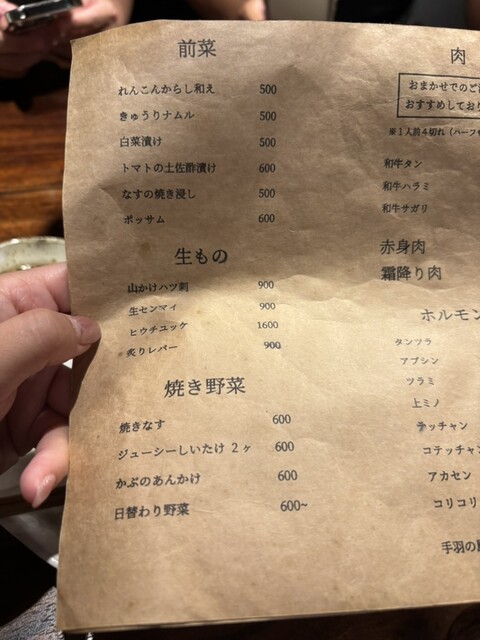 前菜
れんこんからし和え 500
きゅうりナムル 500
白菜漬け 500
トマトの土佐酢漬け 600
なすの焼き浸し 500
ポッサム 600
生もの
山かけハツ刺 900
生センマイ 900
ヒウチユッケ 1600
炙りレバー 900
焼き野菜
焼きなす 600
ジューシーしいたけ 2ヶ 600
かぶのあんかけ 600
日替わり野菜 600~
肉
おまかせでのご
おすすめしており
※1人前4切れ(ハーフ
和牛タン
和牛ハラミ
和牛サガリ
赤身肉
霜降り肉
ホルモン
タンツラ
アブシン
ツラミ
上ミノ
テッチャン
コテッチャン
アカセン
コリコリ
手羽の